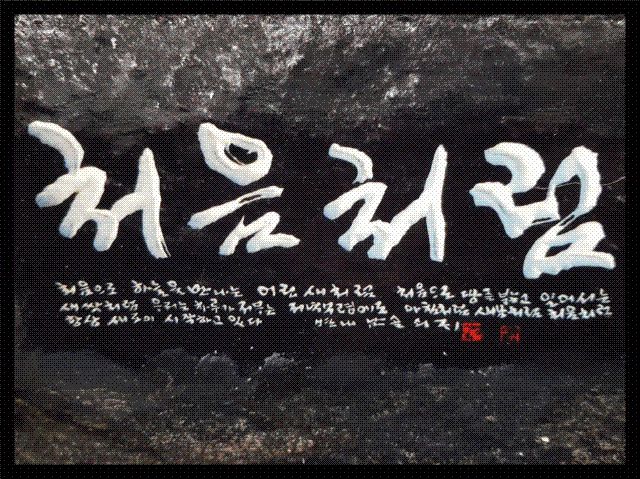 처음처럼
처음으로 하늘을 만나는 어린 새처럼 처음으로 땅을 밟고 일어서는
새싹처럼 우리는 하루가 저무는 아침처럼 새봄처럼 처음처럼
항상 새로이 시작하고 있다